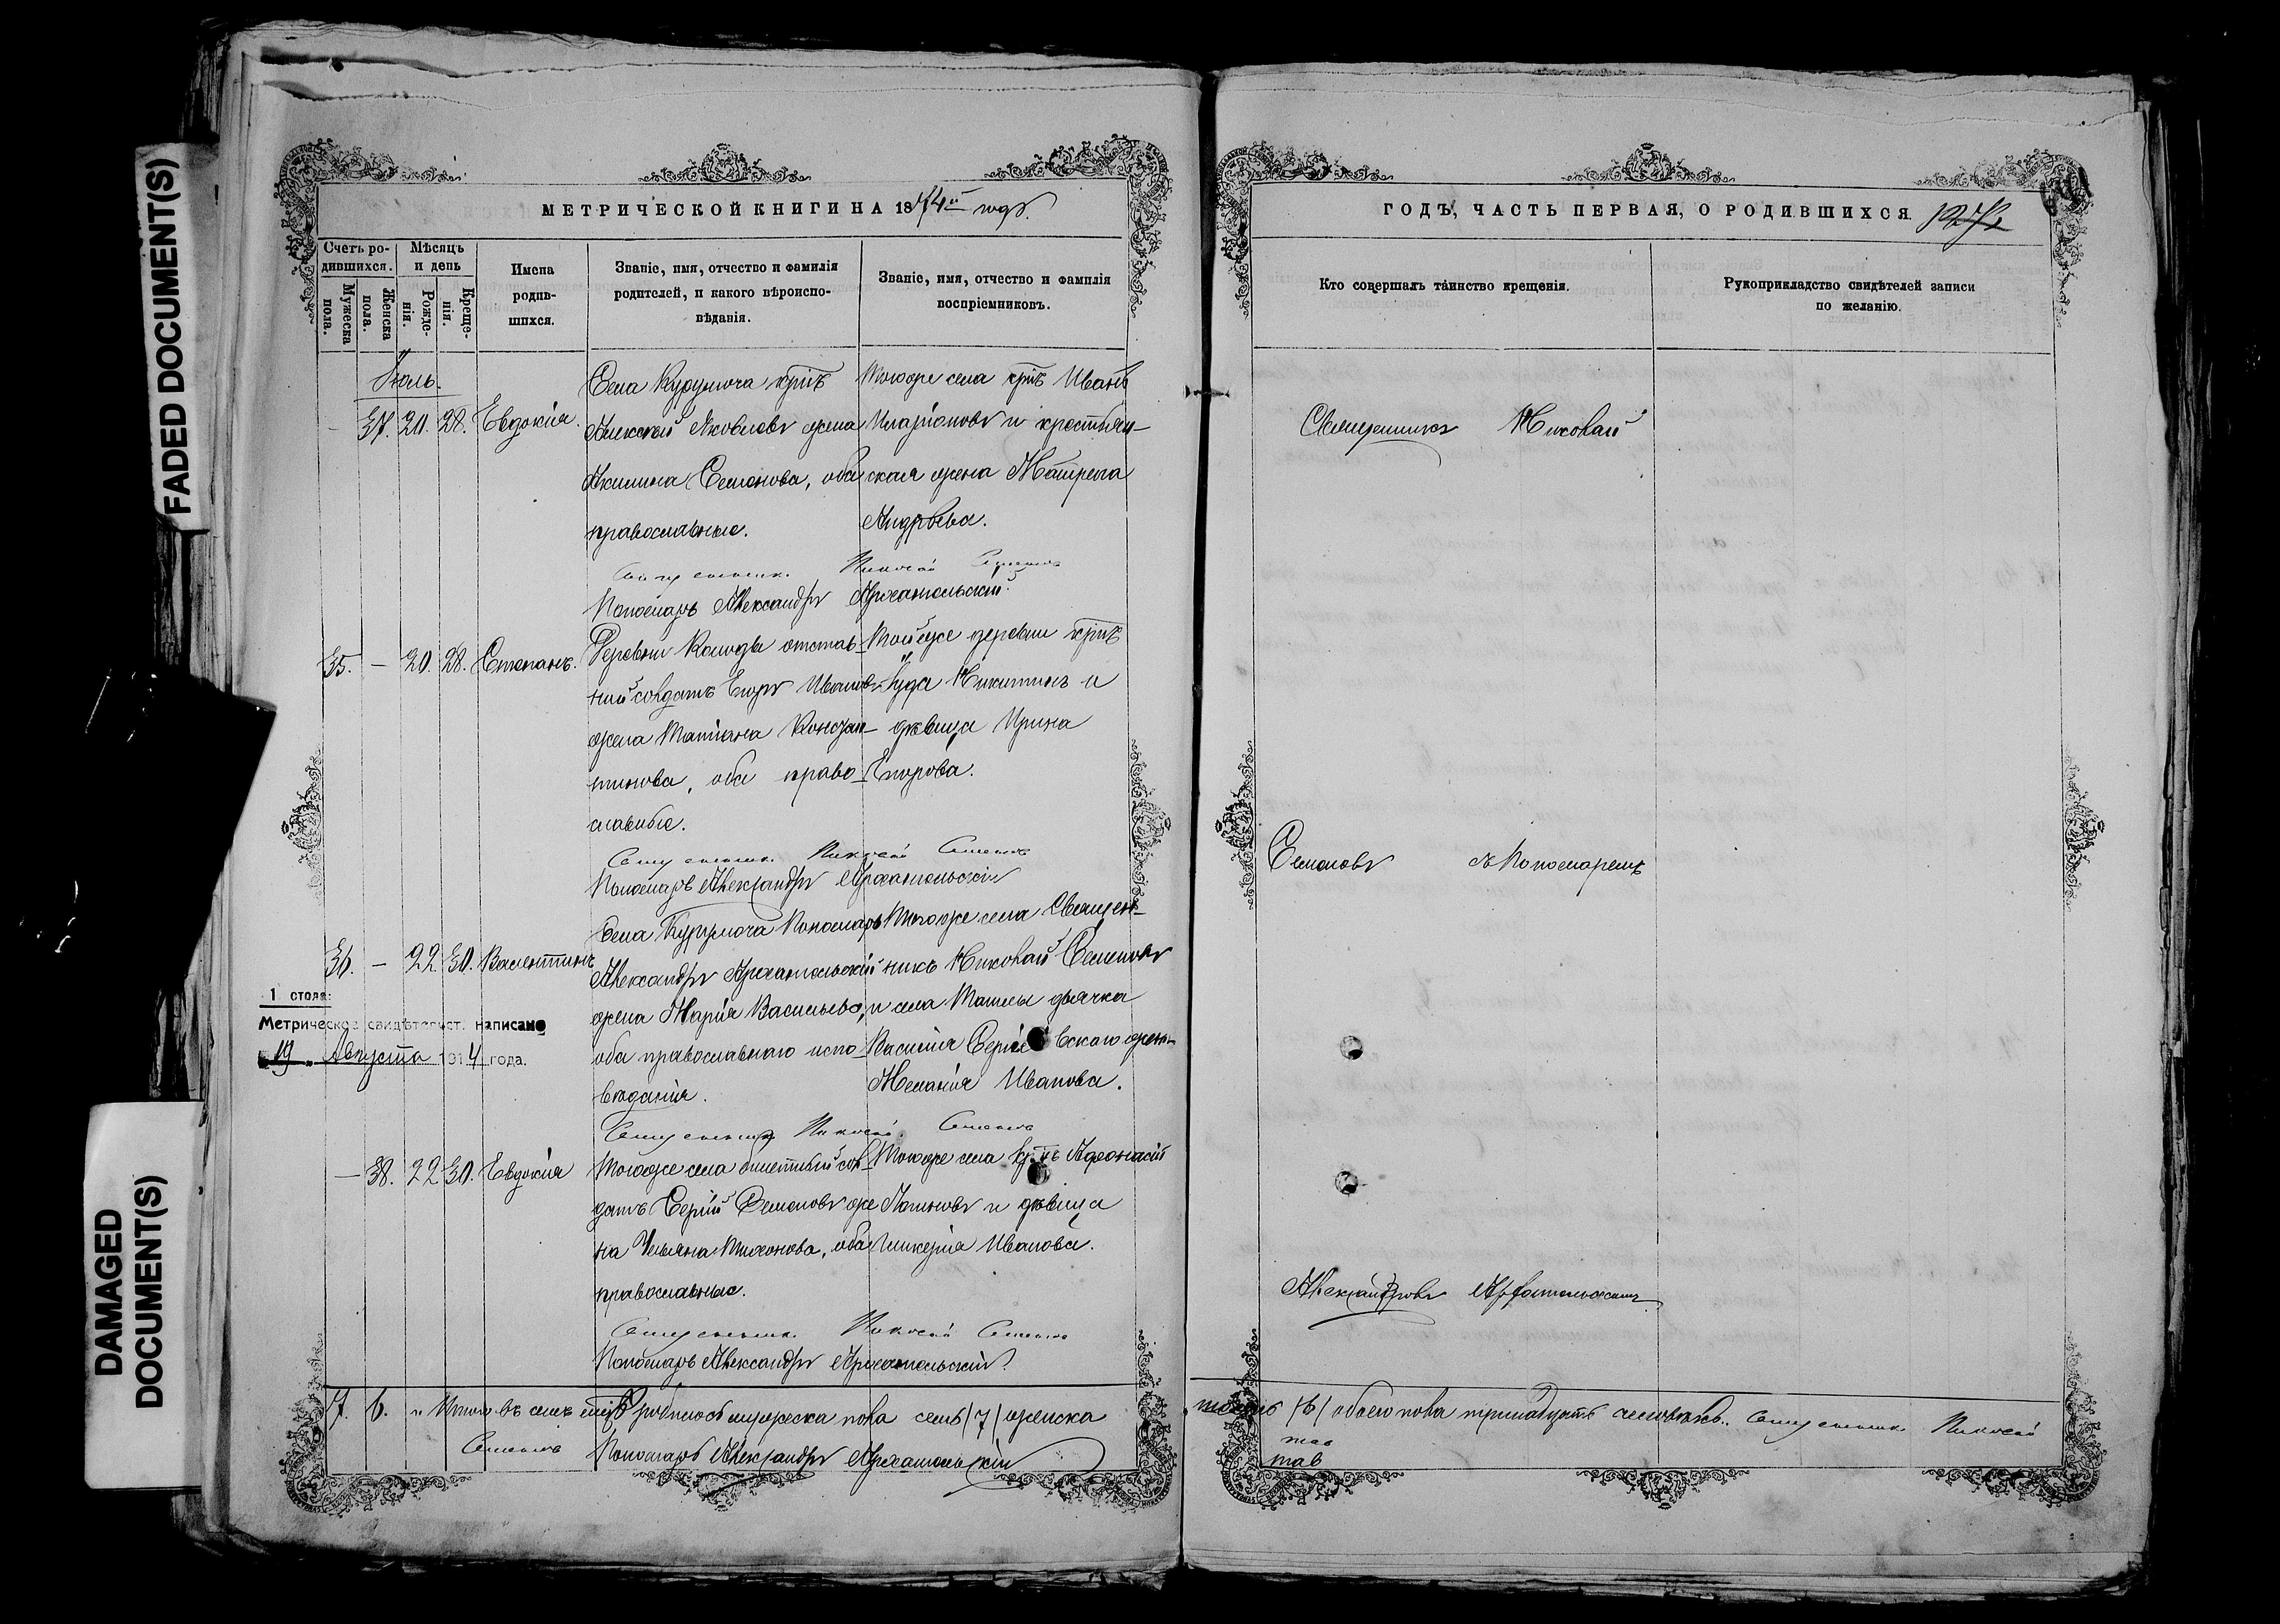 FADED DOCUMENT(S)
DAMAGED
DOCUMENT(S)
МЕТРИЧЕСКОЙ КНИГИ НА 1874й годъ.
Счетъ ро-
дившихся.
Мѣсяцъ
и день
Мужеска
пола.
Женска
пола.
Рожде-
нія.
Креще-
нія.
Имена
родив-
шихся.
Званіе, имя, отчество и фамилія
родителей, и какого вѣроиспо-
вѣданія.
Званіе, имя, отчество и фамилія
воспріемниковъ.
Іюль.
— 37. 20. 28. Евдокія.
Села Курумоча крнъ
Алексѣй Яковлевъ жена
Акилина Семенова, оба
православные.
Тогоже села крнъ Иванъ
Иларіоновъ и крестьян-
ская жена Матрена
Андрѣева.
Священникъ Николай Семеновъ
Пономарь Александръ Архангельскій
35. — 20. 28. Степанъ.
Деревни отстав-
ной солдатъ Егоръ Ивановъ
жена Татіана Констан-
тинова, оба право-
славные.
Тойже деревни крнъ
Іуда Никитинъ и
дѣвица Ирина
Егорова.
Священникъ Николай Семеновъ
Пономарь Александръ Архангельскій
36. — 22. 30. Валентинъ
Села Курумоча Пономарь
Александръ Архангельскій
жена Марія Васильева,
оба православнаго испо-
вѣданія.
Тогоже села Священ-
никъ Николай Семеновъ
и села Ташлы дьячка
Василія Сергіевскаго жена
Меланія Иванова.
1 стола:
Метрическое свидѣтельст. написано
19 Августа 1914 года.
Священникъ Николай Семеновъ
— 38. 22 30. Евдокія
Тогоже села билетный сол-
датъ Сергій Семеновъ же
на Ульяна Тихонова, оба
православные.
Тогоже села кр-нъ Афонасій
Логиновъ и дѣвица
Гликерія Иванова.
Священникъ Николай Семеновъ
Пономарь Александръ Архангельскій
7. 6. Итого въ семъ родилось мужеска пола семь (7) женска
Семеновъ Пономарь Александръ Архангельскій
ГОДЪ, ЧАСТЬ ПЕРВАЯ, О РОДИВШИХСЯ.
Кто совершалъ таинство крещенія.
Рукоприкладство свидѣтелей записи
по желанію.
Священникъ Николай
Семеновъ съ Пономаремъ
Александровъ Архангельскимъ
(6) обоего пола тринадцать человѣкъ. Священникъ Николай